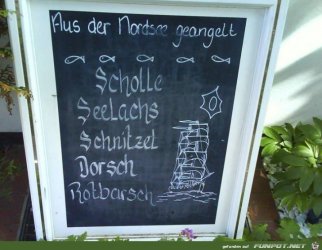 Aus der Nordsee geangelt
Scholle
Seelachs
Schnitzel
Dorsch
Rotbarsch
gefunden auf
FUNPOT.NET